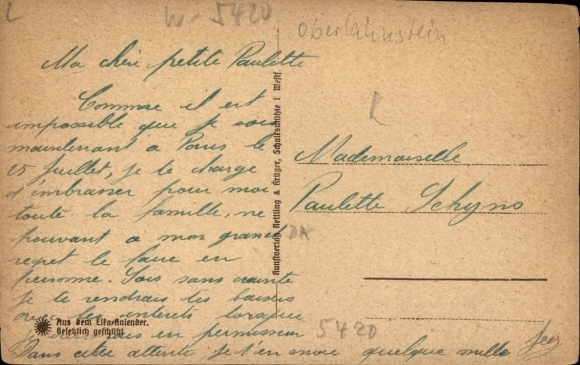 L
W-5420
Oberlahnstein
Ma chère petite Paulette
Comme il est
impossible que je sois
maintenant a Paris le
15 Juillet, je te charge
d'embrasser pour moi
toute la famille, ne
pouvant a mon grand
regret le faire en
personne. Sois sans crainte
je te rendrais tes baisers
avec les interêts lorsque
je viendrais en permission
Dans cette attente je t'en envoie quelque mille
Kunstverlag Gettling & Krüger, Schalksmühle i. Westf.
L
Mademoiselle
Paulette Schyns
DA
Aus dem Elka-Kalender.
Gesetzlich geschützt.
5420